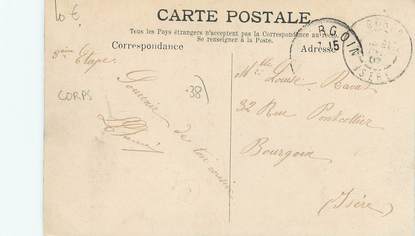 10 €
CARTE POSTALE
Tous les Pays étrangers n'acceptent pas la Correspondance au recto.
Se renseigner à la Poste.
Correspondance
Adresse
Etape.
CORPS
38
Souvenir de ton
Mlle Louise
32 Rue Pontcottier
Bourgoin
Isère
BGOIN
15
ISÈRE